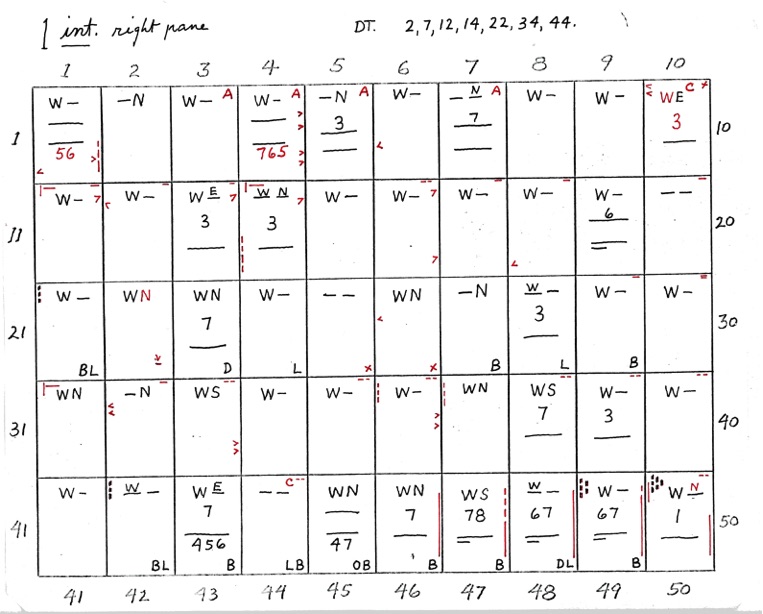 1 int. right pane DT. 2, 7, 12, 14, 22, 34, 44.
1 2 3 4 5 6 7 8 9 10
W- -N W- A W- A -N A W- -N A W- W- WE C x
3 7 3
1 56 765 10
W- 7 W- WE 7 WN 7 W- W- 7 W- W- W- --
3 3 6
11 7 20
W- WN WN W- -- WN -N W- W- W-
7 3
21 30
BL D L x x B L B
WN -N WS W- W- W- WN WS W- W-
7 3
31 40
W- W- WE -- C WN WN WS W- W- WN
7 7 78 67 67 1
41 456 47 50
BL B LB OB B B DL B
41 42 43 44 45 46 47 48 49 50